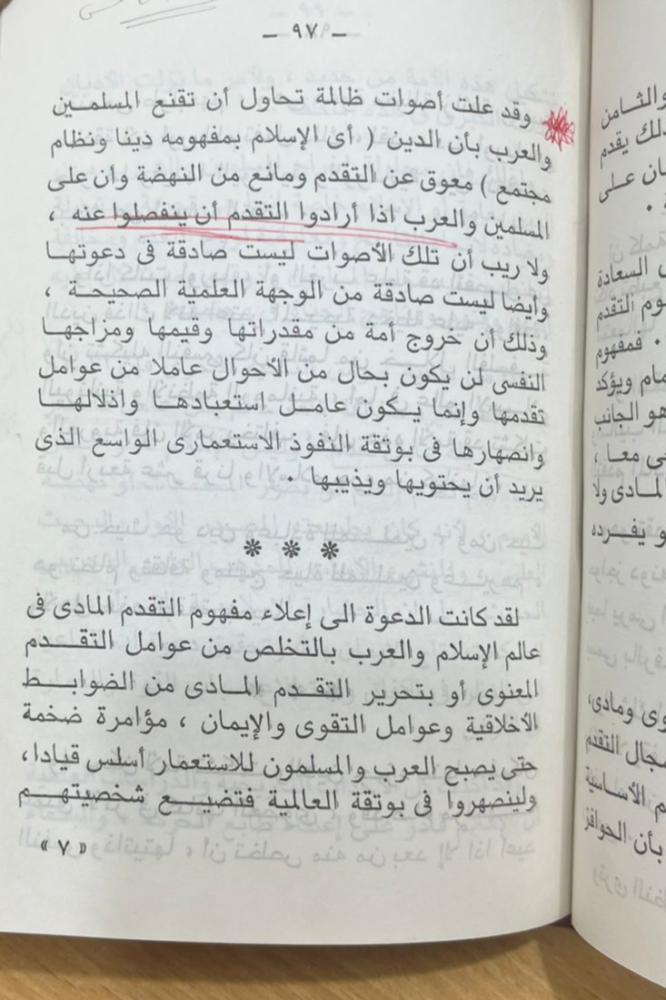 — ٩٧ —
وقد علت أصوات ظالمة تحاول أن تقنع المسلمين
والعرب بأن الدين ( أى الإسلام بمفهومه دينا ونظام
مجتمع ) معوق عن التقدم ومانع من النهضة وان على
المسلمين والعرب اذا أرادوا التقدم أن ينفصلوا عنه ،
ولا ريب أن تلك الأصوات ليست صادقة فى دعوتها
وأيضا ليست صادقة من الوجهة العلمية الصحيحة ،
وذلك أن خروج أمة من مقدراتها وقيمها ومزاجها
النفسى لن يكون بحال من الأحوال عاملا من عوامل
تقدمها وإنما يكون عامل استعبادها واذلالها
وانصهارها فى بوتقة النفوذ الاستعمارى الواسع الذى
يريد أن يحتويها ويذيبها ٠
* * *
لقد كانت الدعوة الى إعلاء مفهوم التقدم المادى فى
عالم الإسلام والعرب بالتخلص من عوامل التقدم
المعنوى أو بتحرير التقدم المادى من الضوابط
الأخلاقية وعوامل التقوى والإيمان ، مؤامرة ضخمة
حتى يصبح العرب والمسلمون للاستعمار أسلس قيادا،
ولينصهروا فى بوتقة العالمية فتضيع شخصيتهم
« ٧ »
والثامن
ذلك يقدم
على
السعادة
التقدم
٠ فمفهوم
ويؤكد
هو الجانب
معا ،
المادى ولا
يفرده
ومادى،
مجال التقدم
الأساسية
بأن الحوافز